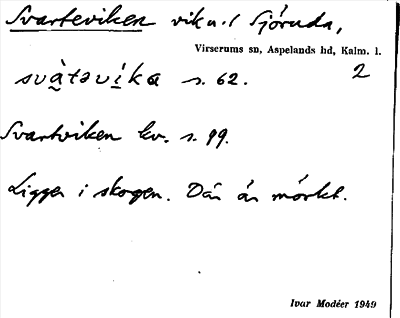 Svarteviken vik u. l Sjöruda,
Virserums sn, Aspelands hd, Kalm. l.
svàtəvíka s. 62. 2
Svartviken kv. s. 99.
Ligger i skogen. Där är mörkt.
Ivar Modéer 1949